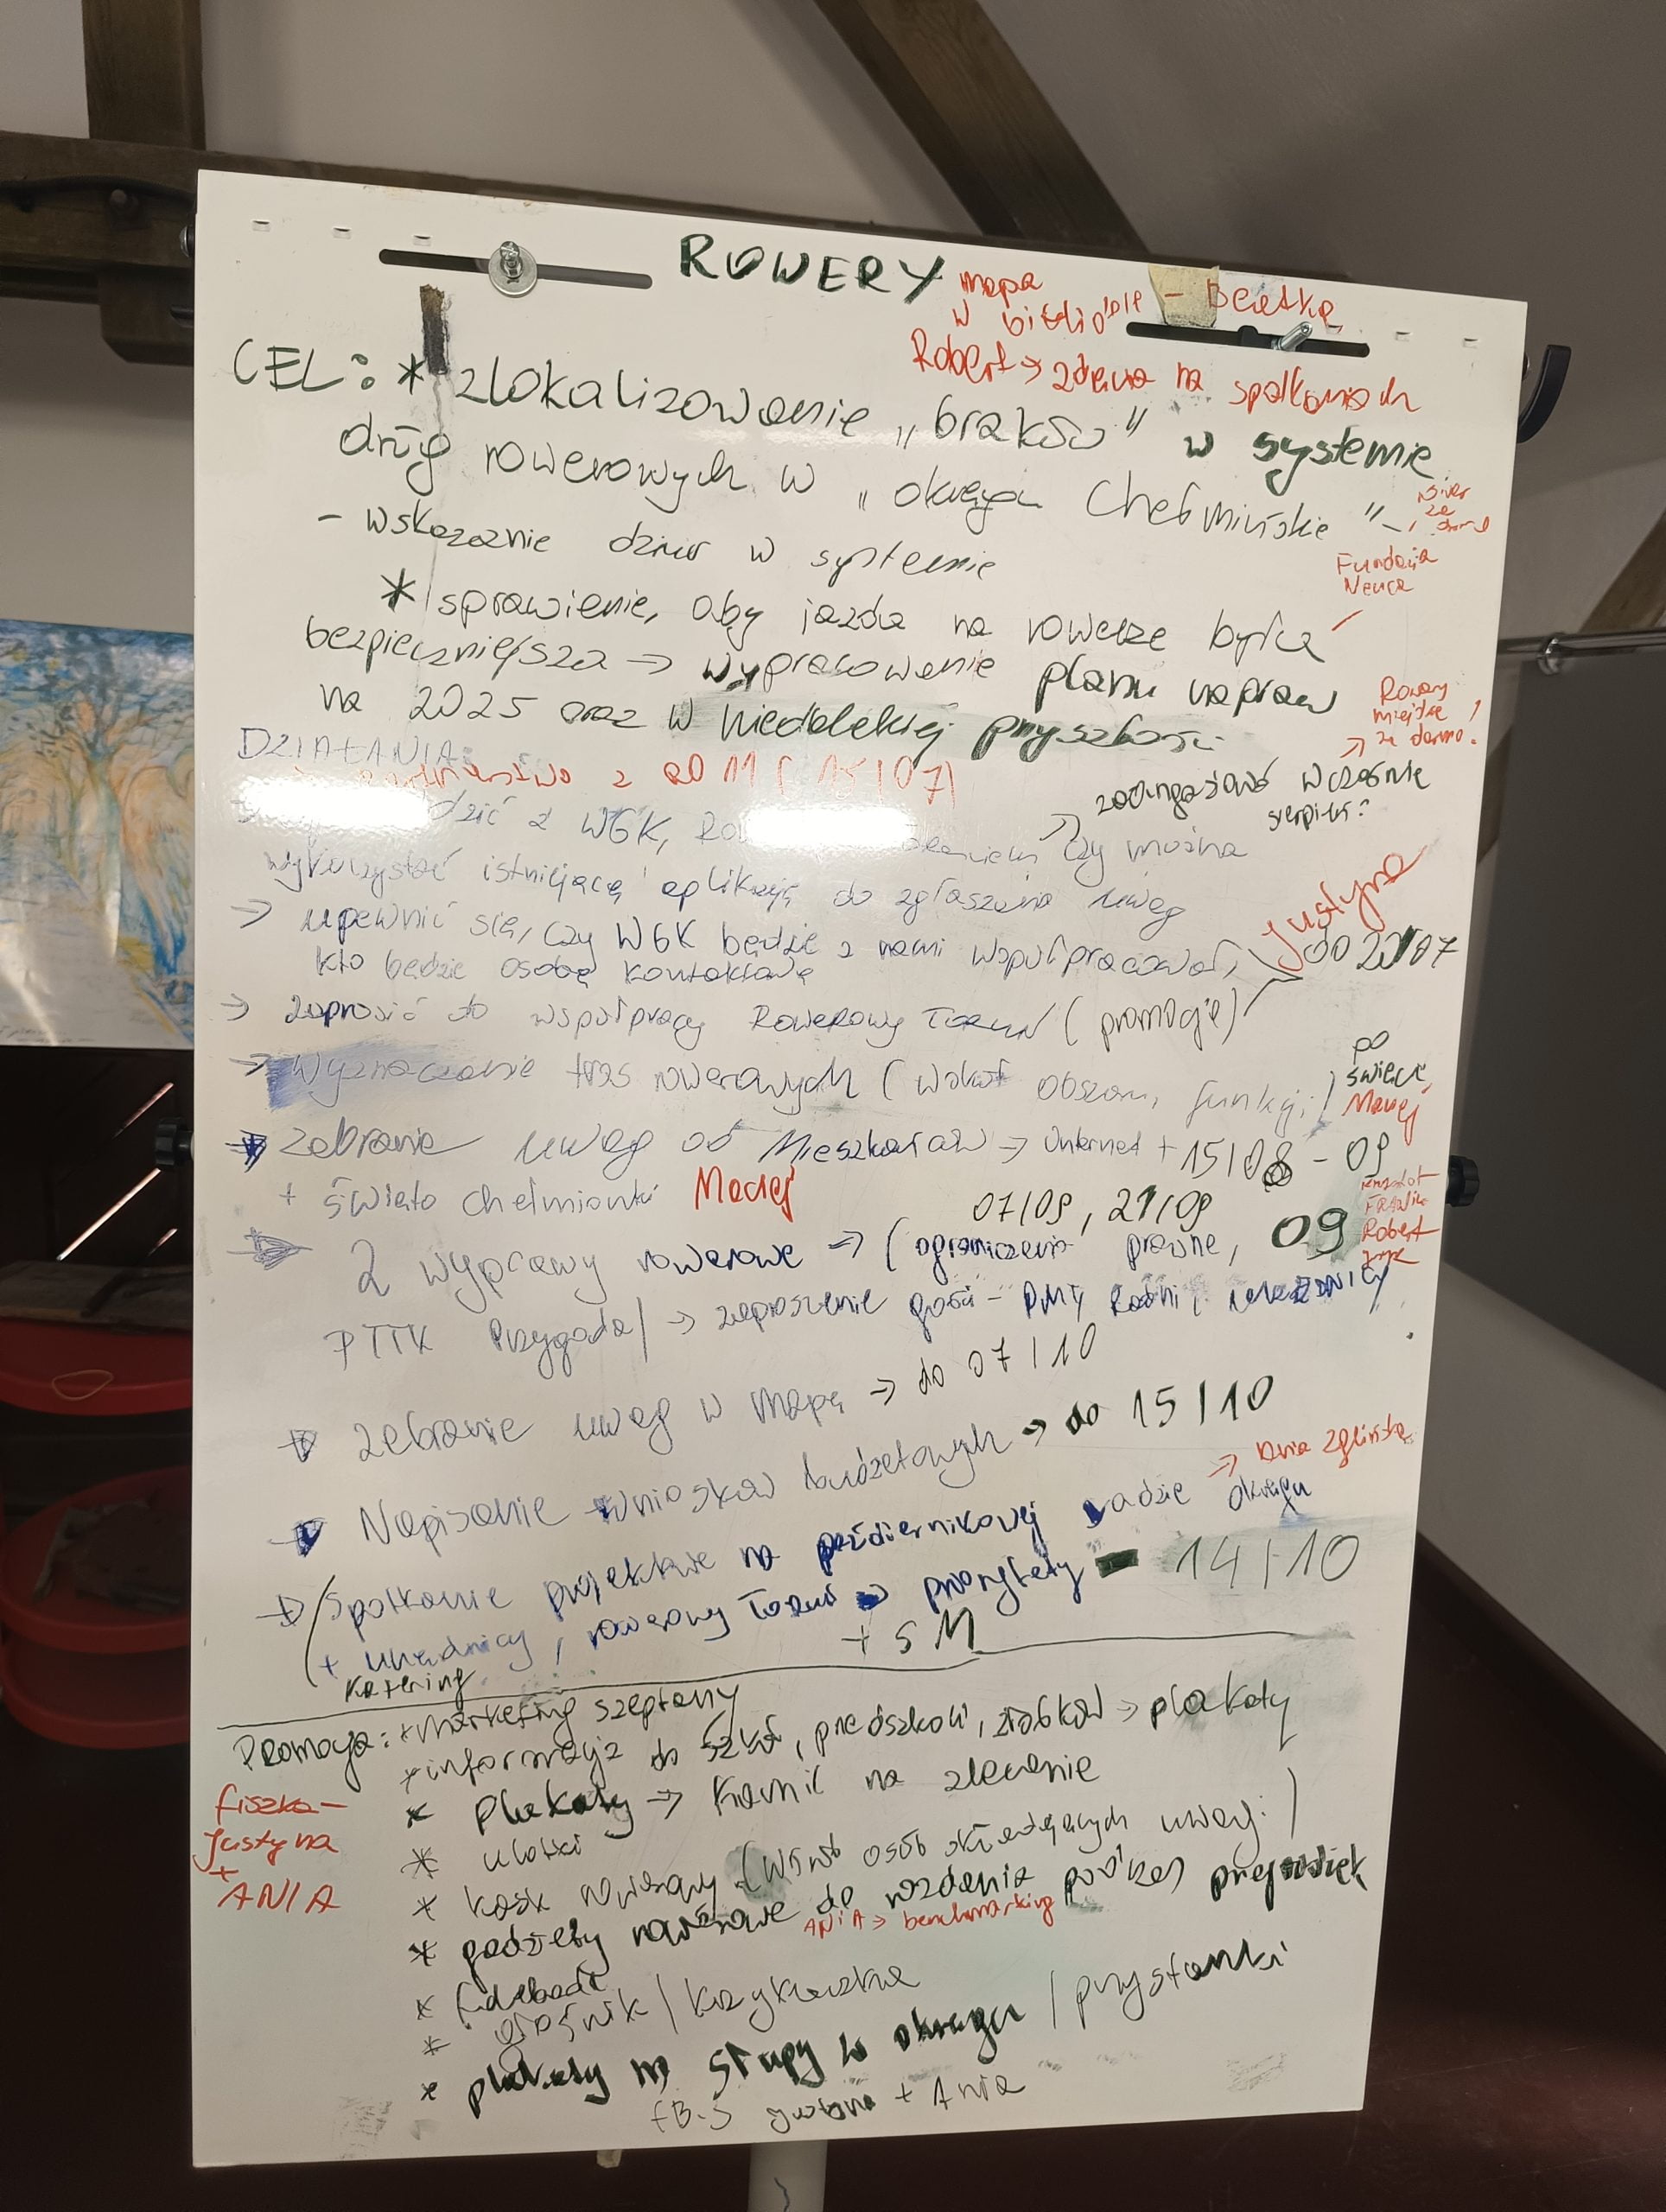 ROWERY
mapa
w bibliotece – Beatka
Robert → zdjęcia na spotkaniach
CEL: * zlokalizowanie „braków" w systemie
dróg rowerowych w „okręgu Chełmińskie" –
- wskazanie dziur w systemie
Fundacja
Neuca
* sprawienie, aby jazda na rowerze była
bezpieczniejsza → wypracowanie planu napraw
na 2025 oraz w niedalekiej przyszłości
Rowery
miejskie !
za darmo.
DZIAŁANIA:
z RO 11 (15/07)
zaangażować wcześnie
sierpień?
z WGK, czy można
wykorzystać istniejącą aplikację do zgłaszania uwag
→ upewnić się, czy WGK będzie z nami współpracować,
kto będzie osobą kontaktową
Justyna
do 22/07
→ zaprosić do współpracy Rowerowy Toruń (promocje)
→ Wyznaczenie tras rowerowych (wokół obszaru, funkcji)
po
święcie
Maciej
→ zebranie uwag od Mieszkańców → Internet + 15/08 - 09
+ święto chełmionki Maciej
07/09, 21/09
→ 2 wyprawy rowerowe → (ograniczenia prawne, 09
Robert
PTTK Przygoda) → zaproszenie gości - PMT, Radni, urzędnicy
→ zebranie uwag w mapę → do 07/10
→ Napisanie wniosków budżetowych → do 15/10
→ Ania Zglińska
→ (Spotkanie projektowe na październikowej radzie okręgu
+ urzędnicy, rowerowy Toruń → priorytety - 14/10
+ SM
Katering
Promocja: * marketing szeptany
* informacja do szkół, przedszkoli, żłobków → plakaty
* plakaty → Kamil na zlecenie
* ulotki
fiszka –
Justyna
+
ANIA
* kask rowerowy (wśród osób składających uwagi)
* gadżety rowerowe do rozdania podczas przejażdżek
ANIA → benchmarking
*
* głośnik / krzykaczka
* plakaty na słupy w okręgu / przystanki
Justyna + Ania